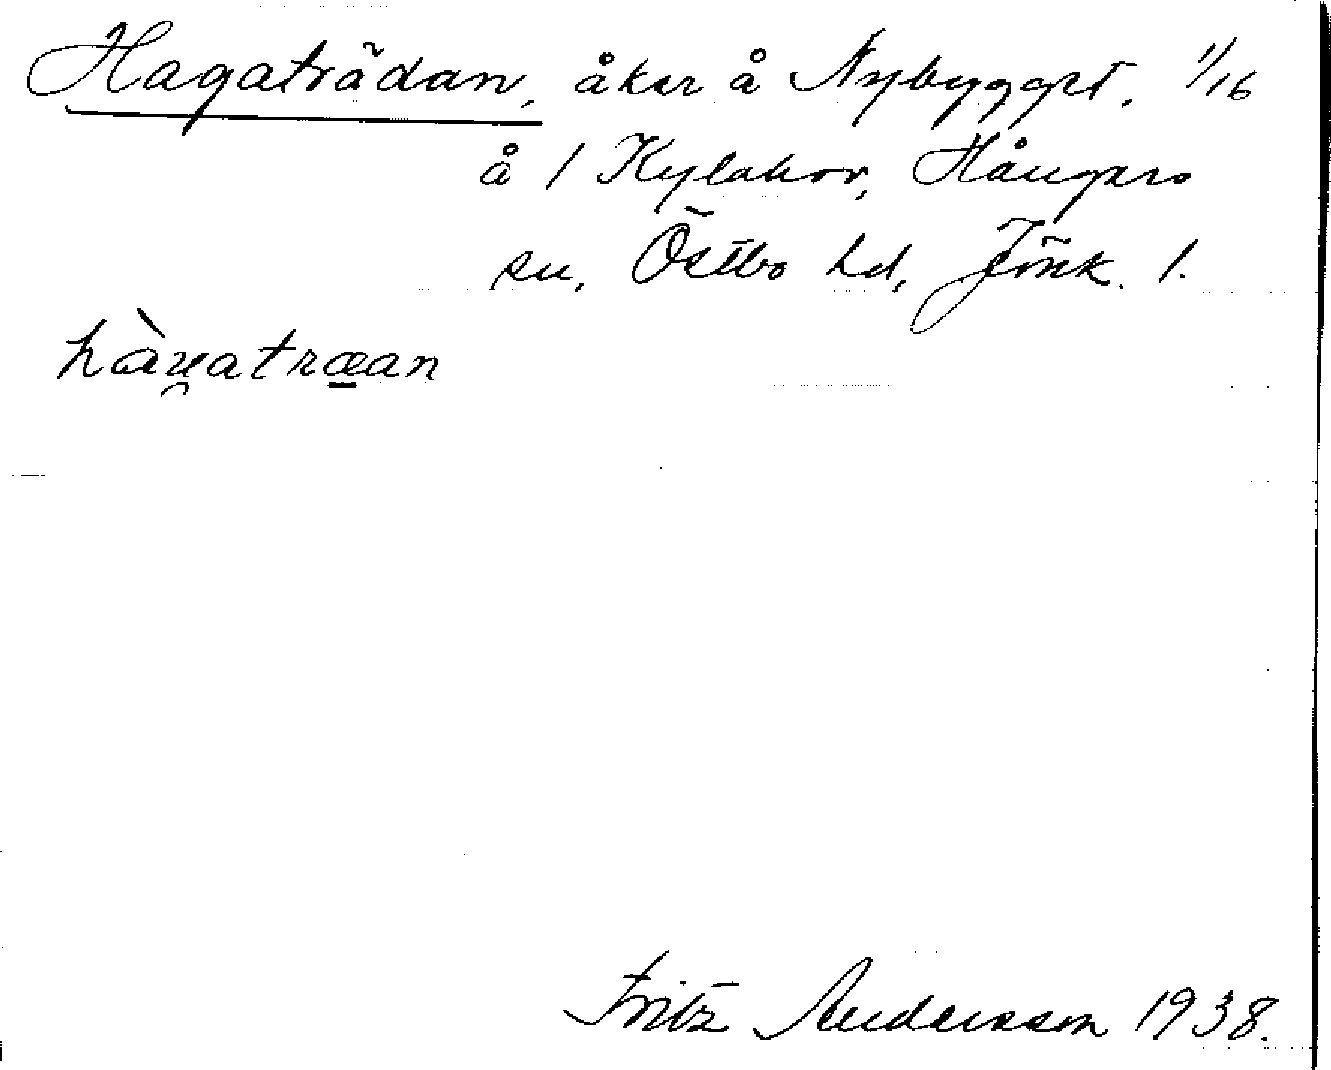 Hagaträdan, åker å Nybygget, 1/16
å 1 Kylahov, Hånger
sn, Östbo hd, Jönk. l.
hàu̯atræan
Fritz Andersson 1938.